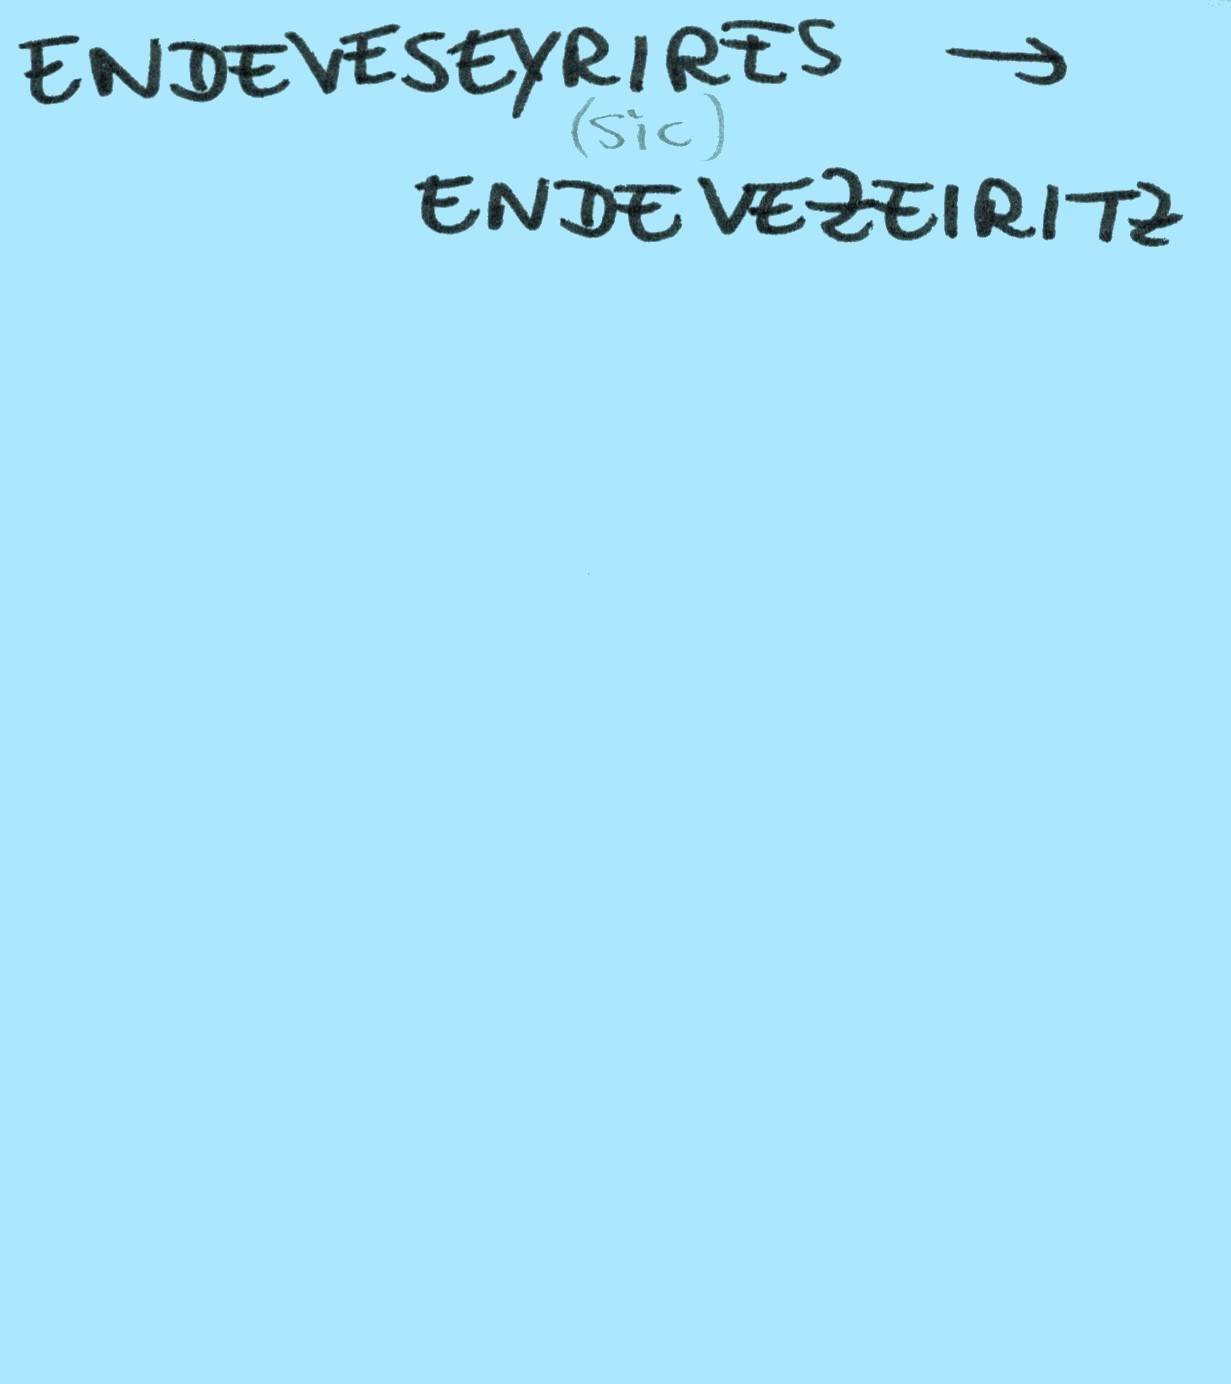 ENDEVESEYRIRES →
(sic)
ENDEVEZEIRITZ